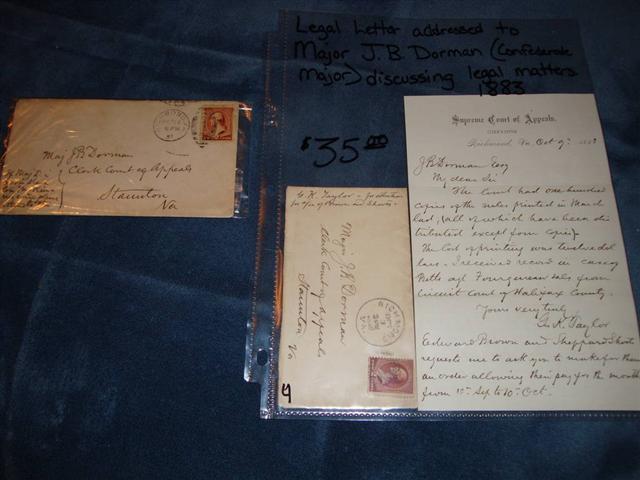 Legal Letter addressed to
Major J.B. Dorman (Confederate
Major) discussing legal matters
1883
$35.00
Maj JB Dorman
Clerk Court of Appeals
Staunton
Va
G. K. Taylor
Major J B Dorman
Clerk Court of appeals
Staunton
Va
RICHMOND
VA
4
Supreme Court of Appeals,
Richmond, Va. Oct 9th 1883
JB Dorman Esq
My dear Sir
The Court had one hundred
copies of the rules printed in March
last, (all of which have been dis
tributed except four copies)
The cost of printing was twelve dol
lars. I received record in case of
Betts agt Fourqurean sals. from
Circuit Court of Halifax County.
Yours very truly
G. K. Taylor
Edward Brown and Sheppard Shorts
requests me to ask you to make for them
an order allowing them pay for the month
from 10th Sep to 10th Oct.